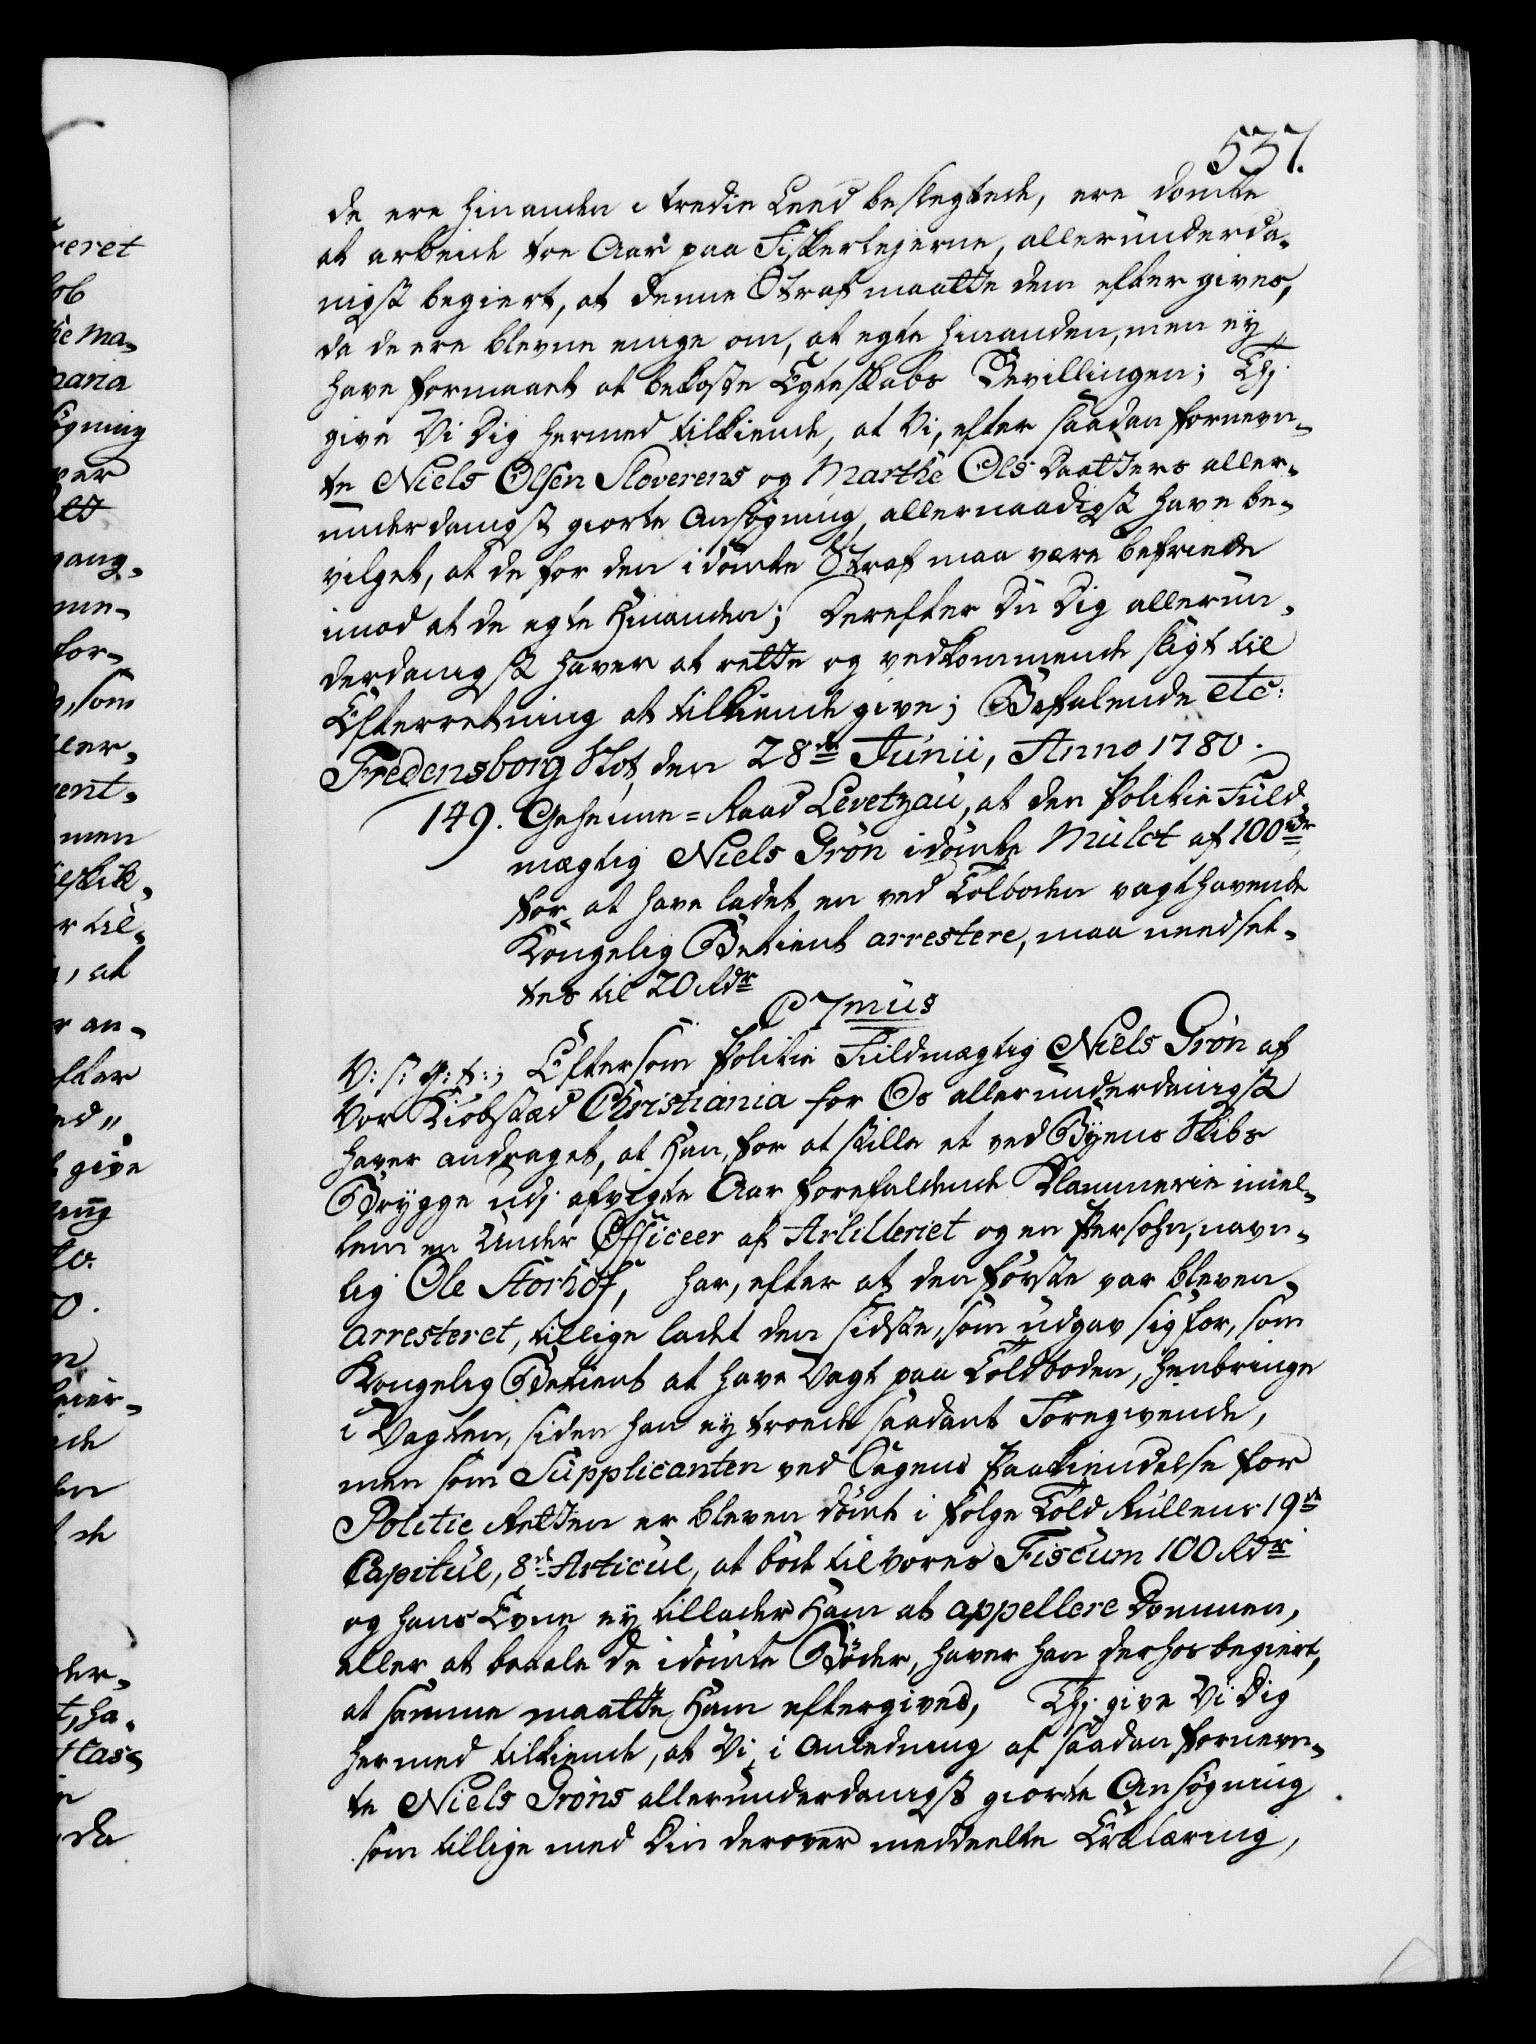 537.
de ere hinanden i tredie Leed beslegtede, ere dömte
at arbeide toe Aar paa Fiskerlejerne, allerunderda-
nigst begiert, at denne Straf maatte dem eftergives,
da de ere blevne enige om, at egte hinanden, men ey
have formaaet at bekoste Egteskabs Bevillingen; Thj
give Vi Dig hermed tilkiende, at Vi, efter saadan fornevn-
te Niels Olsen Sloverens og Marthe Ols Daatters aller-
underdanigst giorte Ansøgning, allernaadigst have be-
vilget, at de for den idömte Straf maa være befriede
imod at de egte Hinanden; Derefter Du Dig allerun-
derdanigst haver at rette og vedkommende sligt til
Efterretning at tilkiende give; Befalende etc:
Fredensborg Slot, den 28de Junii, Anno 1780.
149. Geheime-Raad Levetzau, at den Politie Fuld-
mægtig Niels Grøn idömte Mulct af 100rdr
for at have ladet en ved Tolboden vagthavende
Kongelig Betient arrestere, maa needset-
tes til 20 Rdr
C 7mus
V: s: G: t:, Eftersom Politie Fuldmægtig Niels Grøn af
Vor Kiøbstæd Christiania for Os allerunderdanigst
haver andraget, at Han, for at skille et ved Byens Skibs
Brygge udj afvigte Aar forefaldende Klammerie imel-
lem en Under Officeer af Artilleriet og en Persohn, navn-
lig Ole Storhof, har, efter at den første var bleven
arresteret, tillige ladet den sidste, som udgav sig for, som
Kongelig Betient at have Vagt paa Toldboden, henbringe
i Vagten, siden han ey troede saadant Foregivende,
men som Supplicanten ved Sagens Paakiendelse for
Politie Retten er bleven dömt i følge Told Rullens 19de
Capitul, 8de Articul, at böde til Vores Fiscum 100 Rdr
og hans Evne ey tillader Ham at appellere Dommen,
eller at betale de idömte Bøder, haver han derhos begiert,
at samme maatte Ham eftergives, Thj give Vi Dig
hermed tilkiende, at Vi, i Anledning af saadan fornevn-
te Niels Grøns allerunderdanigst giorte Ansøgning
som tillige med Din derover meddeelte Erklæring,